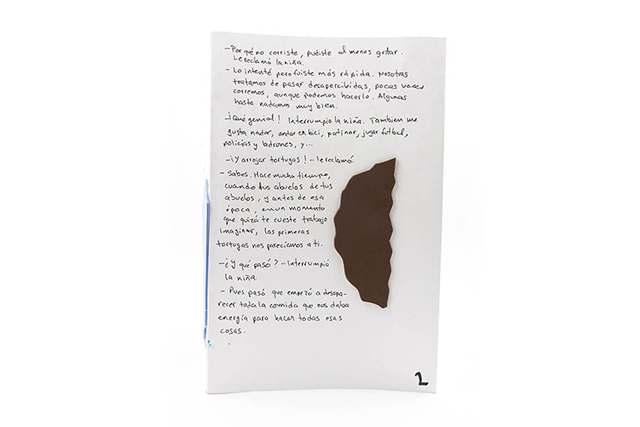 -Por qué no corriste, pudiste al menos gritar.
Le reclamó la niña.
- Lo intenté pero fuiste más rápida. Nosotras
tratamos de pasar desapercibidas, pocas veces
corremos, aunque podemos hacerlo. Algunas
hasta nadamos muy bien.
-¡Qué genial! Interrumpio la niña. Tambien me
gusta nadar, andar en bici, patinar, jugar futbol,
policías y ladrones, y...
-¡Y arrojar tortugas! -le reclamó.
- Sabes. Hace mucho tiempo,
cuando tus abuelos de tus
abuelos, y antes de esa
época, en un momento
que quizá te cueste trabajo
imaginar, las primeras
tortugas nos parecíamos a ti.
-¿Y qué pasó? -Interrumpió
la niña.
- Pues pasó que empezó a desapa-
recer toda la comida que nos daba
energía para hacer todas esas
cosas.
2